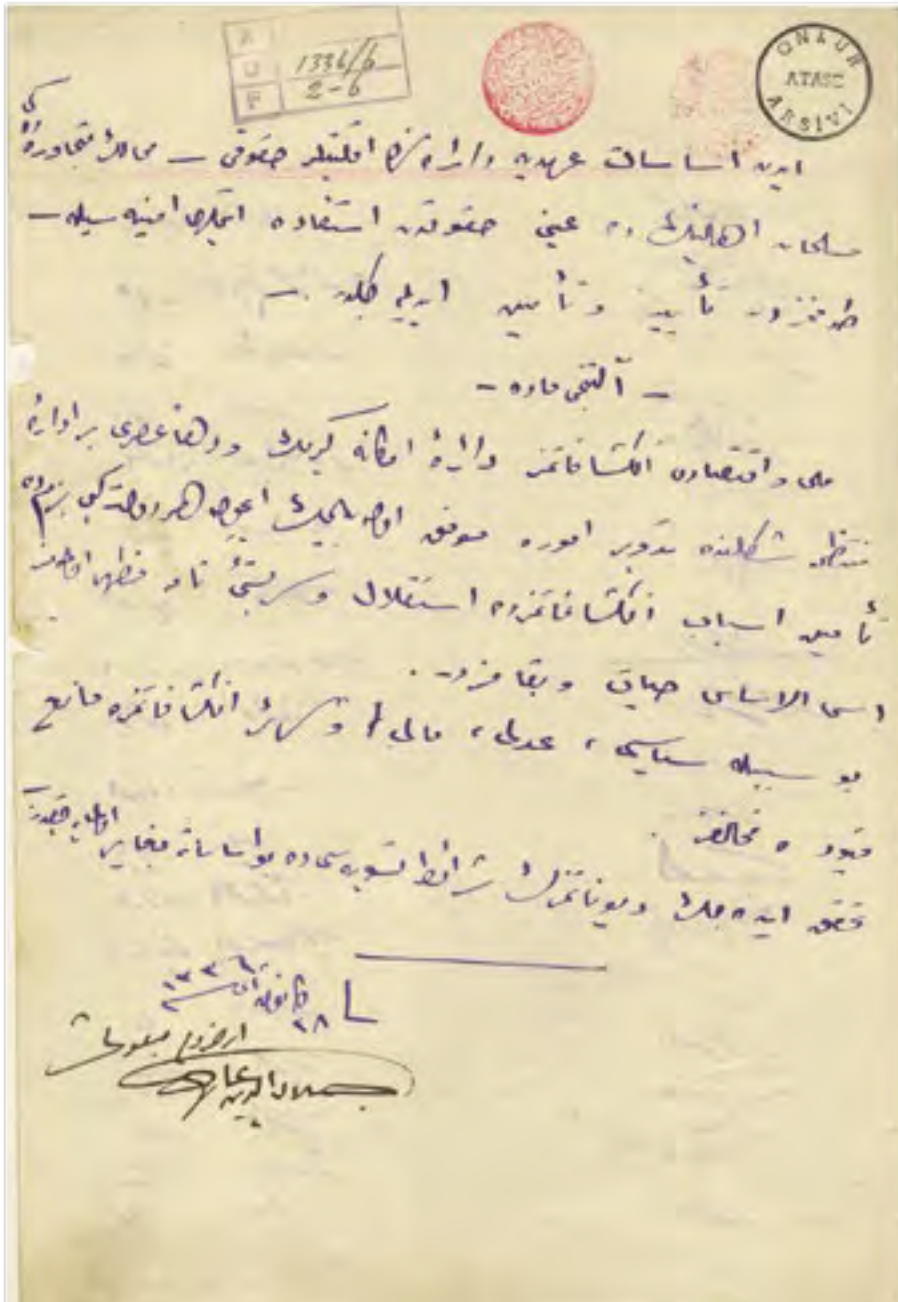 1336/6
2-6
GN.KUR
ATASE
ARŞİVİ
ايدن اساسات عهديه دائره‌سنده اقليتلر حقوقى — ممالك متجاوره‌ده‌كى
مسلمان اهالينك ده عينى حقوقدن استفاده ايتمك امنيه‌سيله —
طرفمزدن تأييد و تأمين ايديله‌جكدر —
— آلتنجى ماده —
ملى و اقتصادى انكشافاتمز دائرهٔ امكانه كيرمك و دها عصرى بر ادارهٔ
منتظمه شكلنده تدوير اموره موفق اوله‌بيلمك ايچون هر دولت كبى بزم ده
تأمين اسباب انكشافاتمزده استقلال و سربستئ تامه مظهر اولمه‌مز
اس الاساس حيات و بقامزدر.
بو سببله سياسى، عدلى، مالى و سائره انكشافاتمزه مانع
قيوده مخالفز.
تحقق ايده‌جك ديوناتمزك شرائط تسويه‌سى ده بو اساساته مغاير اولميه‌جقدر
٢٨ كانون ثانى ١٣٣٦
ارضروم مبعوثى
جلال الدين عارف